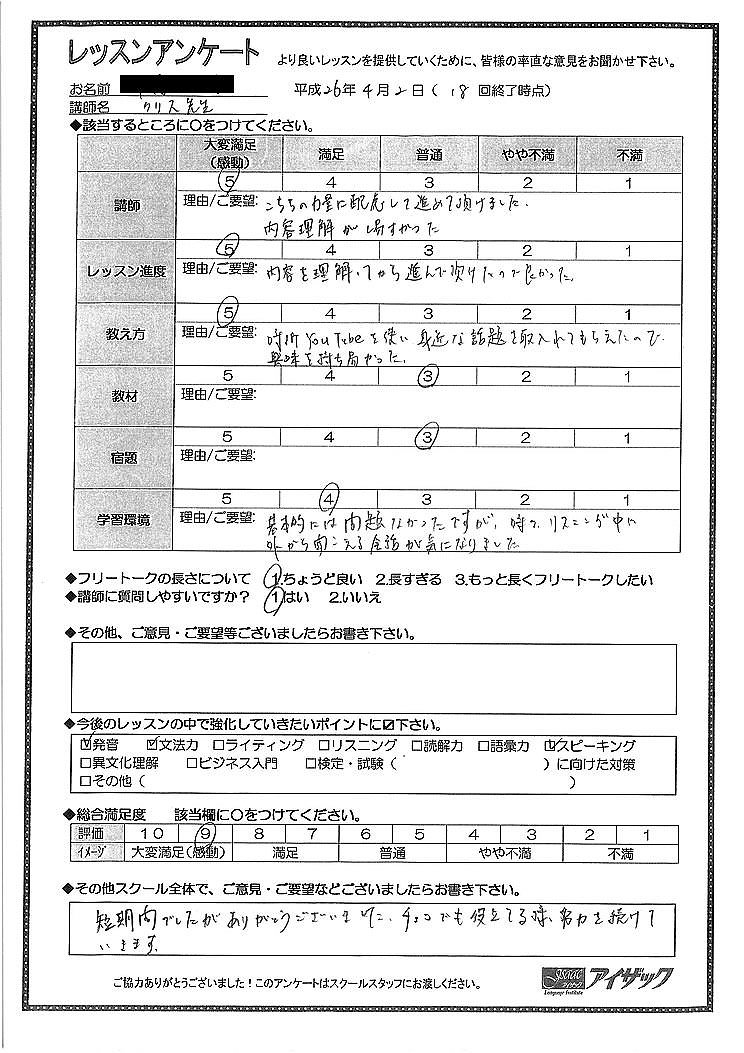 レッスンアンケート より良いレッスンを提供していくために、皆様の率直な意見をお聞かせ下さい。
お名前 平成26年4月2日( 18 回終了時点)
講師名 クリス先生
◆該当するところに○をつけてください。
大変満足(感動) 満足 普通 やや不満 不満
講師 5 4 3 2 1
理由/ご要望: こちらの力量に配慮して進めて頂けました.
内容理解が し易すかった
レッスン進度 5 4 3 2 1
理由/ご要望: 内容を理解してから進んで頂けたので良かった.
教え方 5 4 3 2 1
理由/ご要望: 時折 YouTubeを使い 身近な話題を取入れてもらえたので.
興味を持ち易かった.
教材 5 4 3 2 1
理由/ご要望:
宿題 5 4 3 2 1
理由/ご要望:
学習環境 5 4 3 2 1
理由/ご要望: 基本的には問題なかったですが, 時々, リスニング中に
外から聞こえる会話が気になりました
◆フリートークの長さについて 1.ちょうど良い 2.長すぎる 3.もっと長くフリートークしたい
◆講師に質問しやすいですか? 1.はい 2.いいえ
◆その他、ご意見・ご要望等ございましたらお書き下さい。
◆今後のレッスンの中で強化していきたいポイントに☑下さい。
☑発音 ☑文法力 □ライティング □リスニング □読解力 □語彙力 ☑スピーキング
□異文化理解 □ビジネス入門 □検定・試験( )に向けた対策
□その他( )
◆総合満足度 該当欄に○をつけてください。
評価 10 9 8 7 6 5 4 3 2 1
イメージ 大変満足(感動) 満足 普通 やや不満 不満
◆その他スクール全体で、ご意見・ご要望などございましたらお書き下さい。
短期間でしたがありがとうございました. チョコでも役立てる様、努力を続けて
いきます.
ご協力ありがとうございました!このアンケートはスクールスタッフにお渡しください。
ISAAC Language Institute アイザック